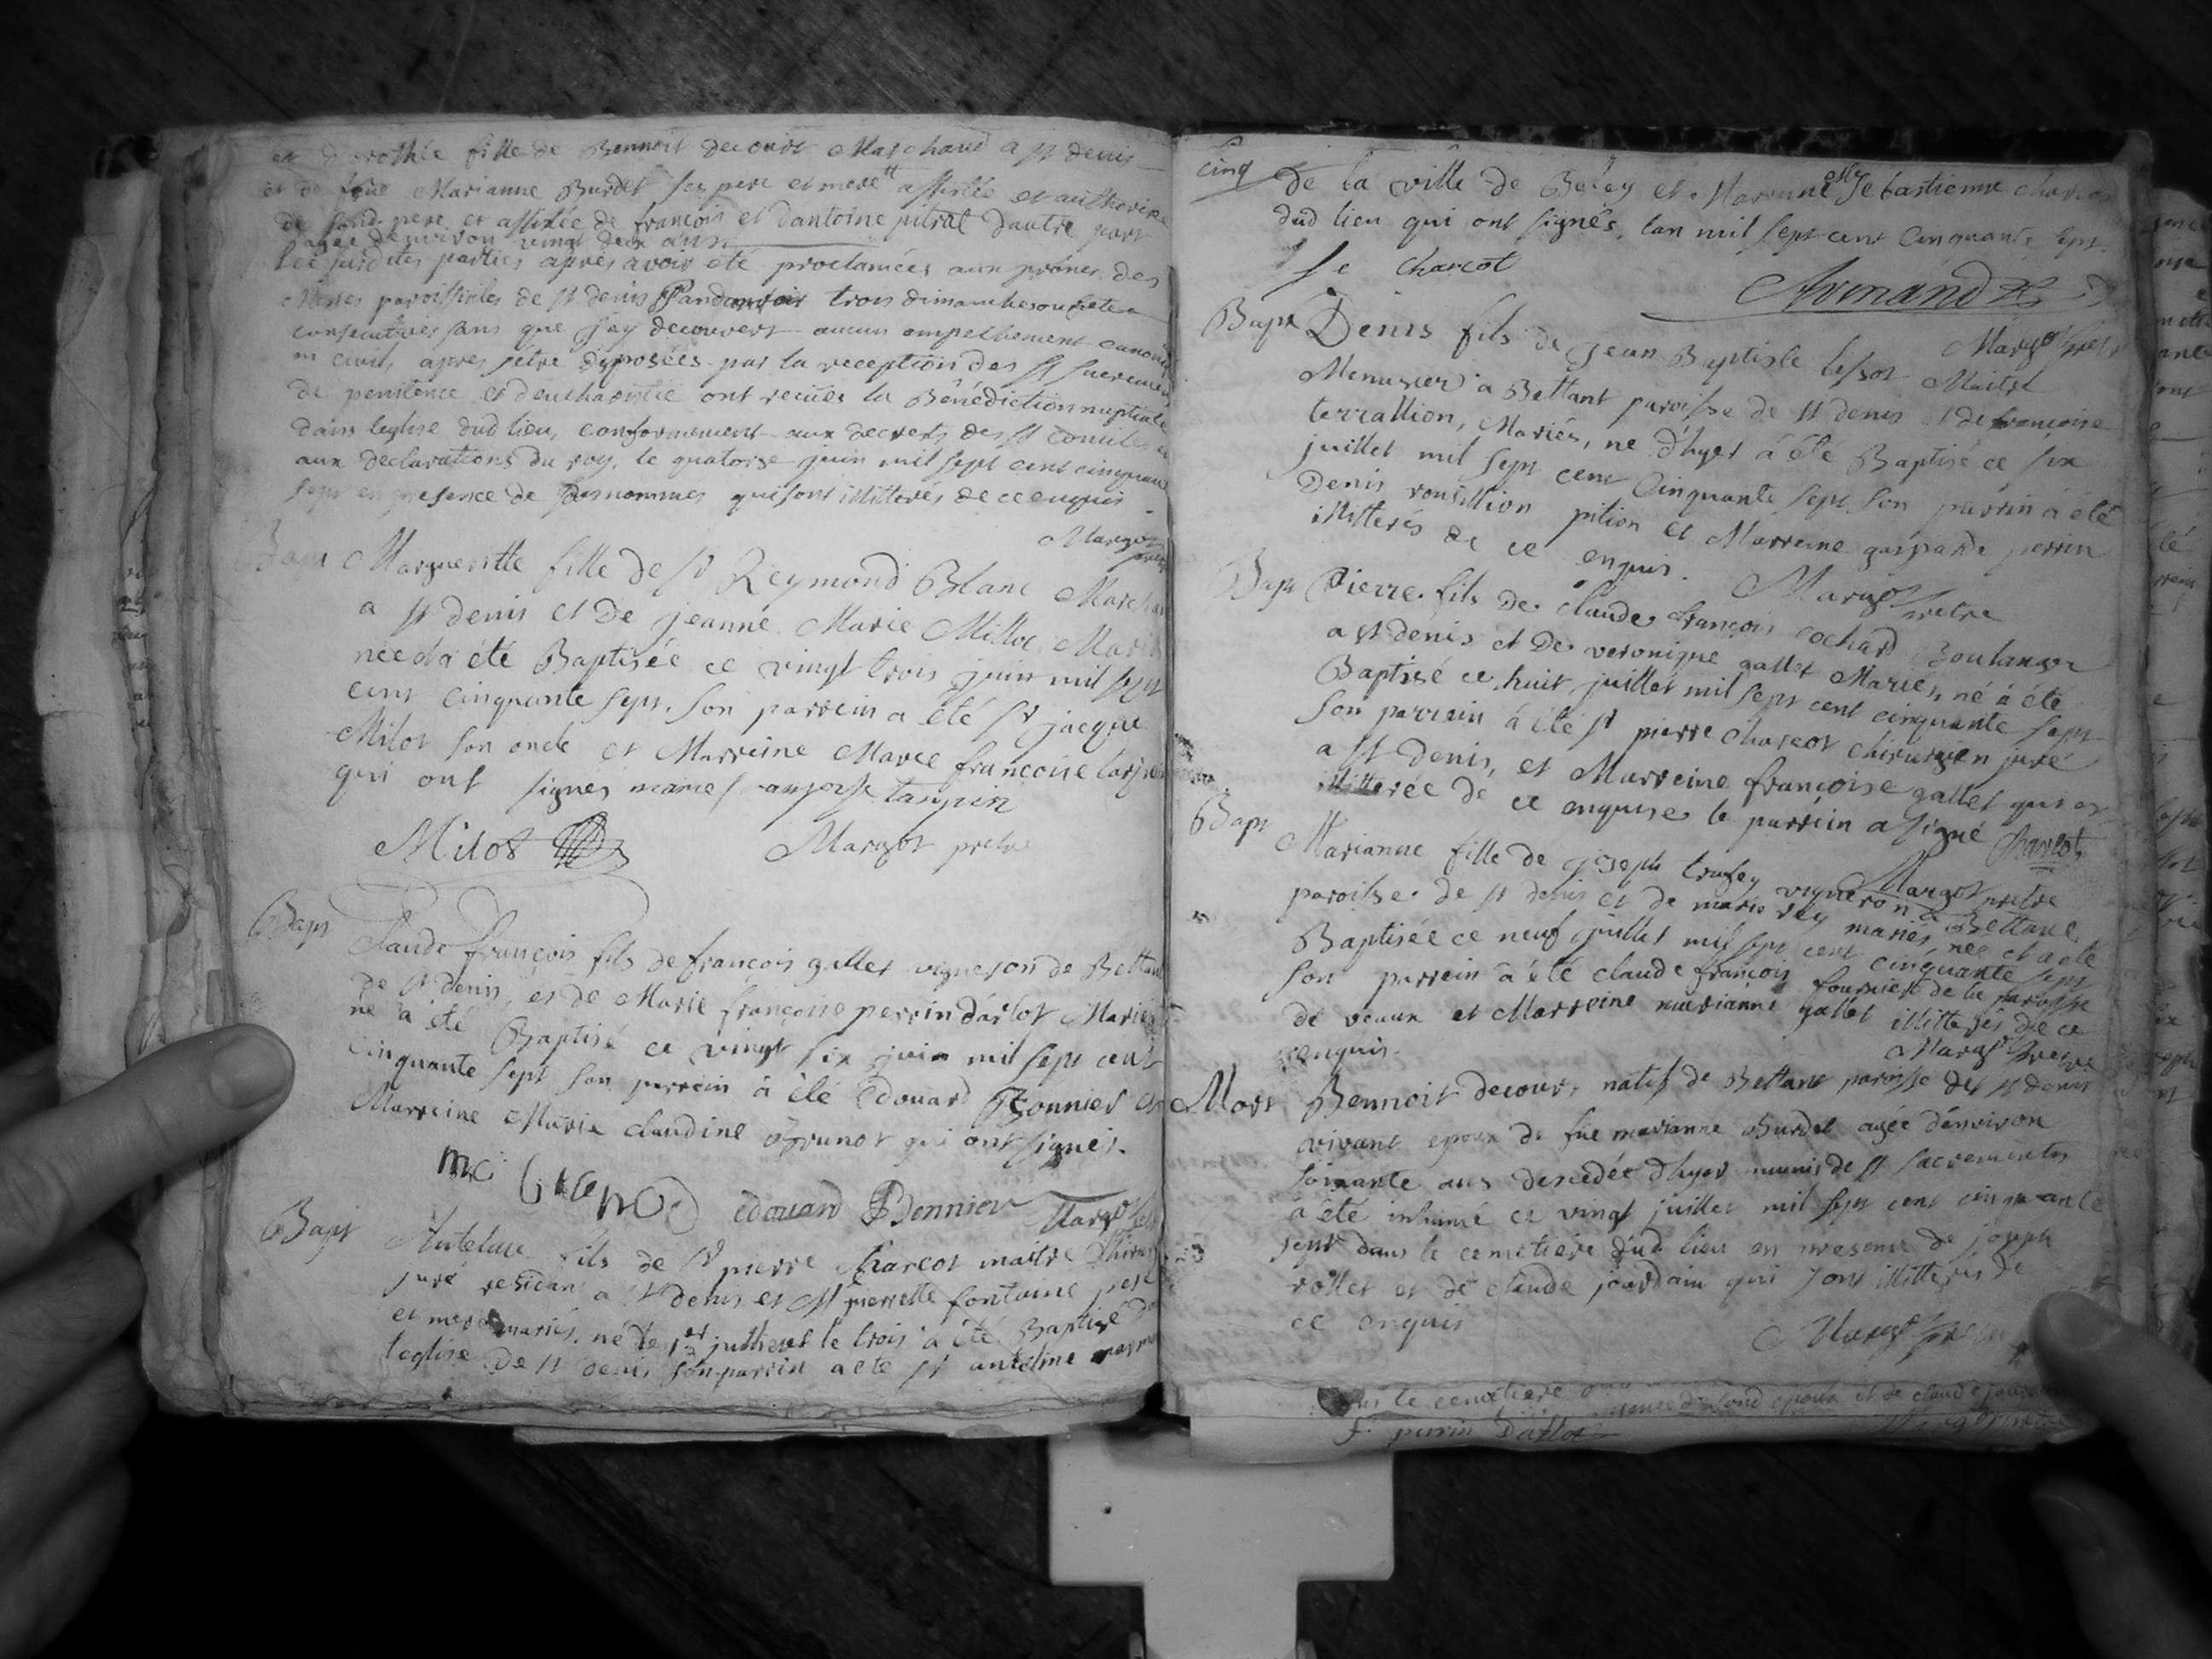 et Dorothée fille de Bennoit decourt Marchand a st denis
et de feüe Marianne Burdet ses pere et mere assistée et authorisée
de sond. pere et assistée de francois et dantoine pitrat dautre part
agée denviron vingt deux ans.
Les susdites parties apres avoir été proclamées aux prônes des
Messes paroissiales de st denis Pandant trois dimanches ou fetes
consecutives sans que j'ay decouvert aucun empechement canoniq
ni civil, apres s'etre disposées par la reception des sts sacremens
de penitence et d'eucharistie ont recües la Bénédiction nuptiale
dans leglise dud lieu, conformement aux decrets des sts conciles et
aux declarations du roy, le quatorse juin mil sept cent cinquante
sept en presence de susnommes qui sont illitterés de ce enquis
Margot pretre
Bapt Marguerite fille de sr Reymond Blanc Marchan
a st denis et de jeanne Marie Millot Mariés
née et a été Baptisée ce vingt trois juin mil sept
cent cinquante sept, son parrein a été sr jacque
Milot son oncle et Marreine Marie francoise
qui ont signes
Milot Margot pretre
Bapt Claude françois fils de francois gallet vigneron de Bettant
de st denis, et de Marie françoise perrin darlot Mariés
né a été Baptisé ce vingt six juin mil sept cent
cinquante sept son parrein à été Edouard Bonnier et
Marreine Marie claudine Brunot qui ont signés.
edouard Bonnier Margot
Bapt Antelme fils de sr pierre charcot maitre Chirur
juré residant a st denis et Mr pierrette fontaine pere
et mere mariés. né le 1er juillet le trois a été Baptisé d
leglise de st denis son parrein a été sr antelme
cinq de la ville de Beley et Marreine elle Sebastienne charcot
dud lieu qui ont signés, lan mil sept cent Cinquante sept.
Se Charcot Armand
Margot pretre
Bapt Denis fils de jean Baptiste Maitre
Menusier a Bettant paroisse de st denis et de francoise
terrallion, Mariés, ne d'hyer à été Baptisé ce six
juillet mil sept cent Cinquante sept, son parrin à été
Denis rousillion pition et Marreine gasparde perrin
illitterés de ce enquis. Margot pretre
Bapt Pierre fils de claude françois cochard Boulanger
a st denis et de veronique gallet Mariés, né à été
Baptisé ce huit juillet mil sept cent cinquante sept
son parrein à été sr pierre charcot chirurgien juré
a st denis, et Marreine françoise gallet qui est
illitterée de ce enquise le parrein a signé Charcot
Margot pretre
Bapt Marianne fille de joseph vigneron a Bettant
paroisse de st denis et de marie rey mariés, née et a été
Baptisée ce neuf juillet mil sept cent cinquante sept
son parrein à été claude francois fournier de la paroisse
de veaux et Marreine marianne gallet illitterés de ce
enquis. Margot pretre
Mort Bennoit decour, natif de Bettant paroisse de st denis
vivant epoux de füe marianne Burdet agée d'environ
soixante ans decedée d'hyer munis de st sacrements
à été inhumé ce vingt juillet mil sept cent cinquante
sept dans le cemetiere dud lieu en presence de joseph
rollet et de claude jourdain qui sont illitterés de
ce enquis Margot pretre
le cemetiere
et de claude
f. perrin Darlot